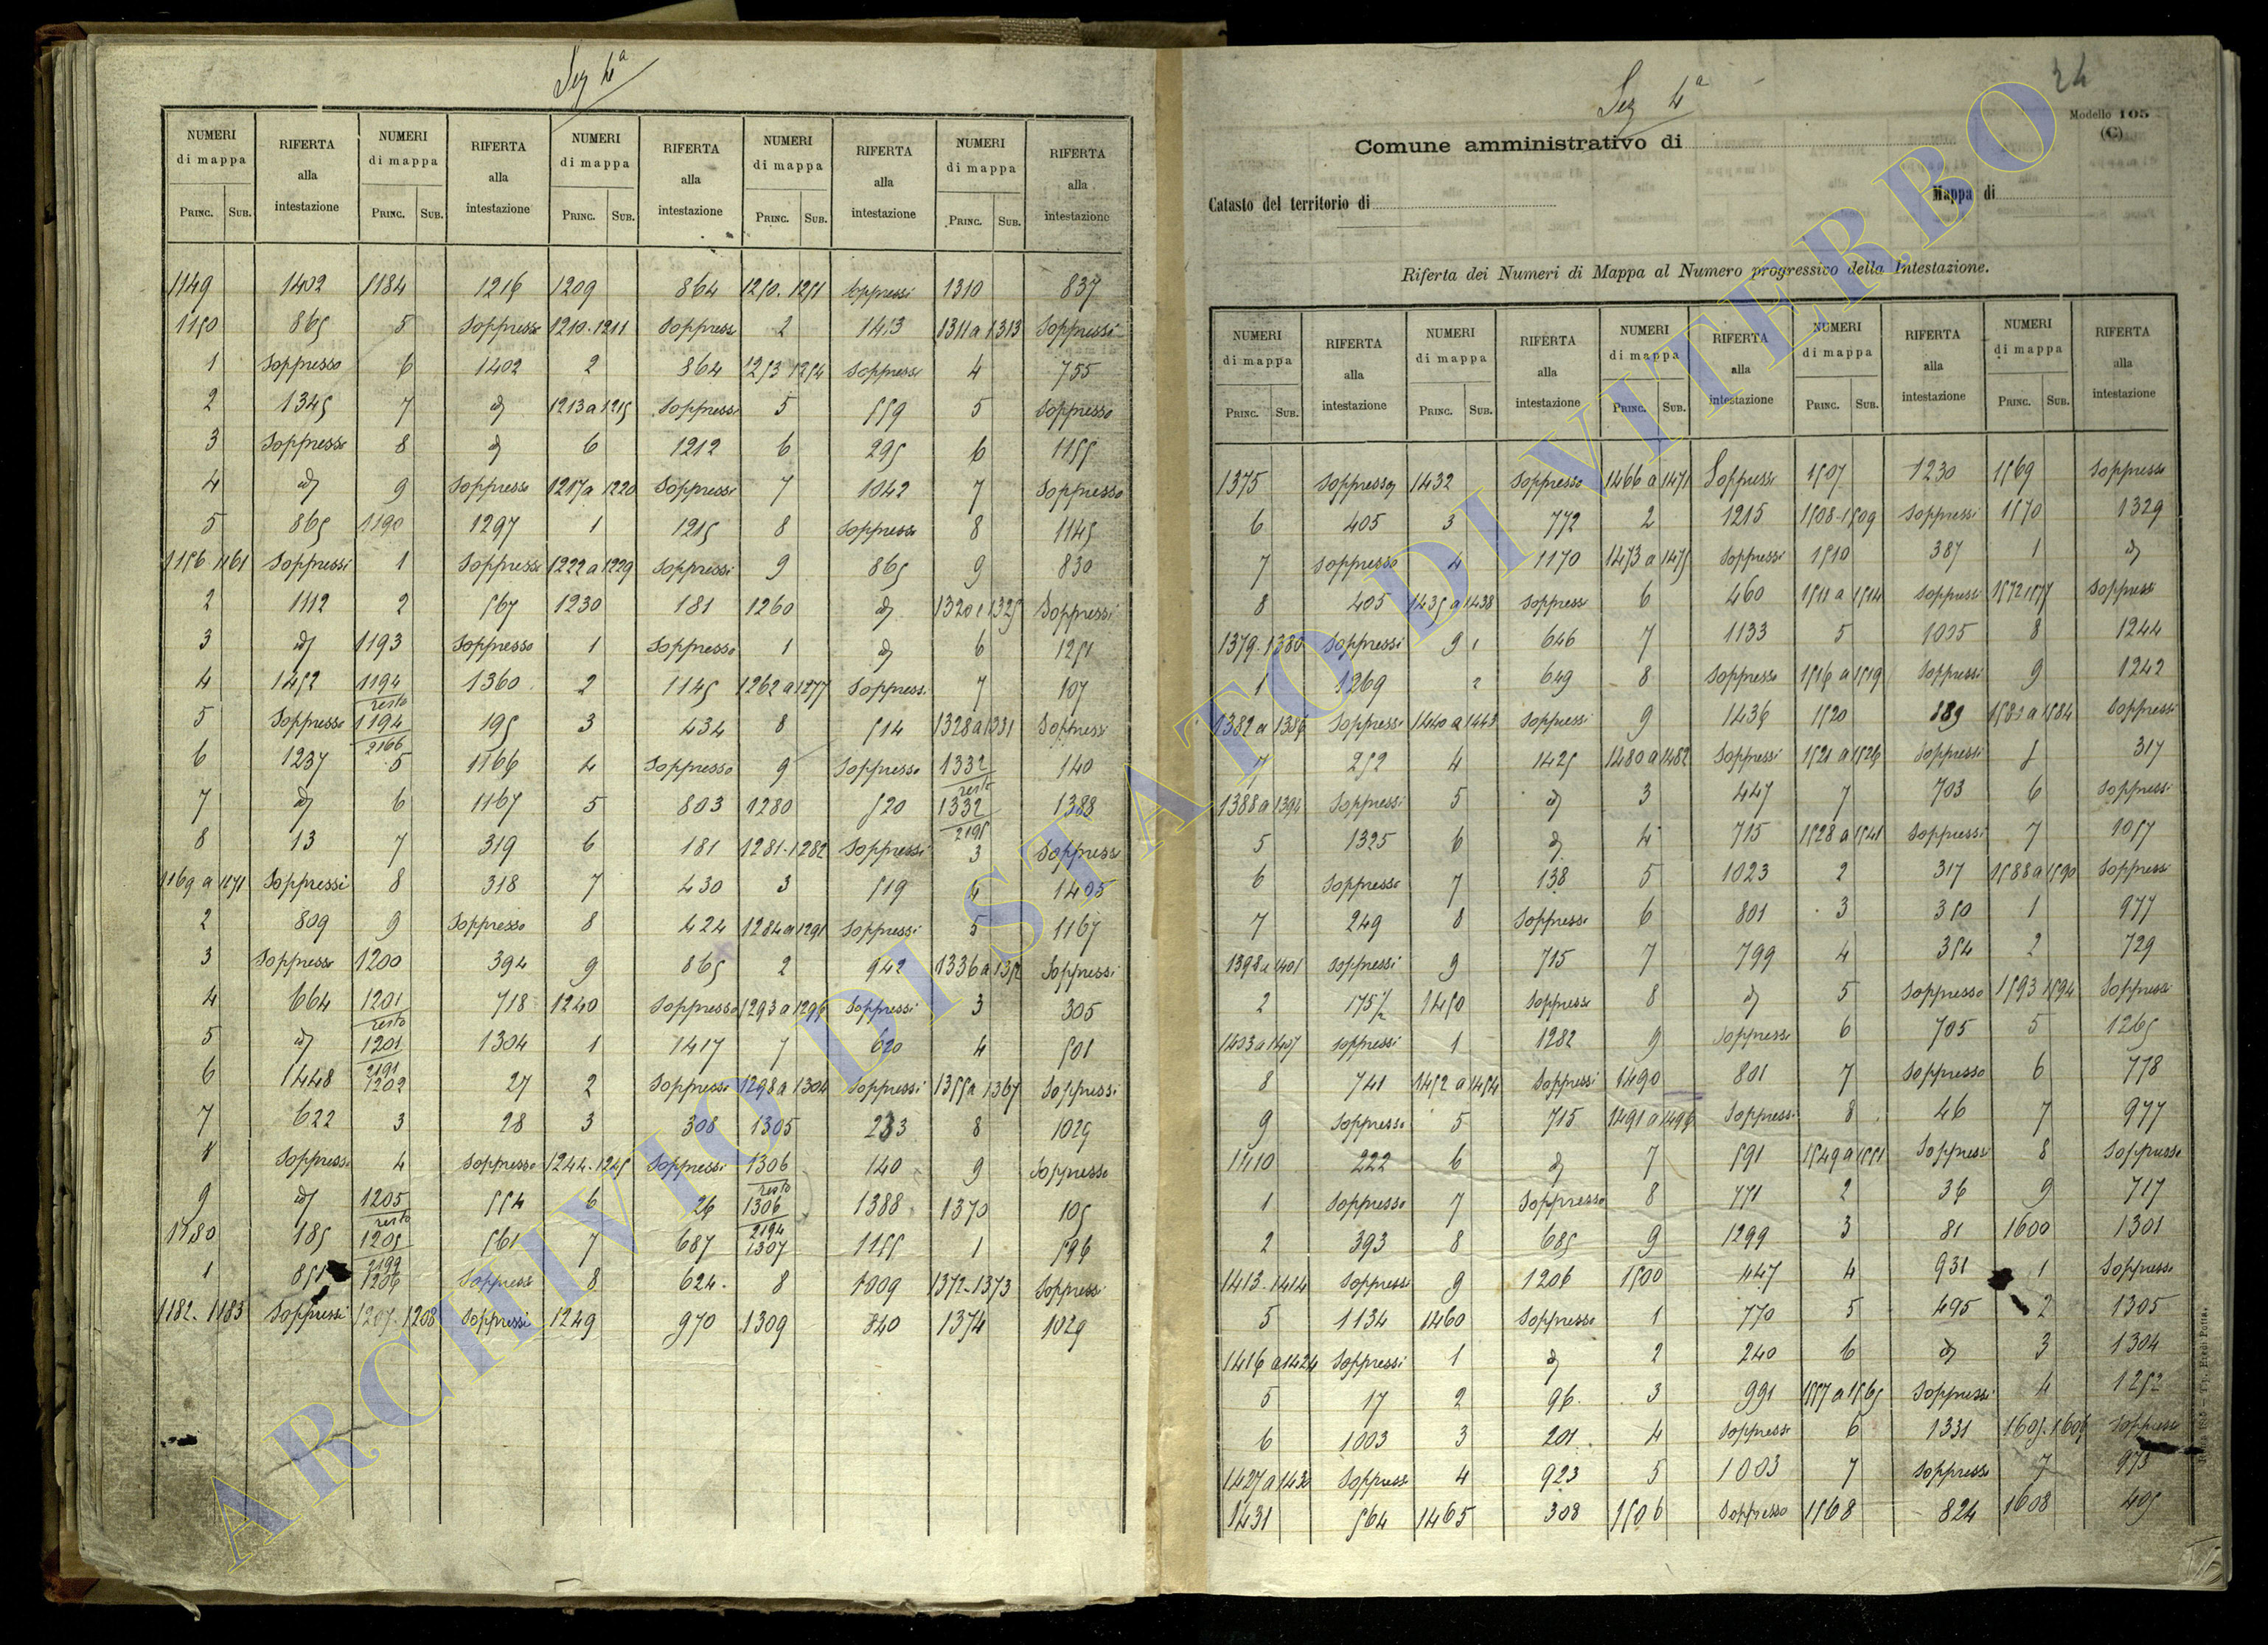 Sez 4ª
NUMERI di mappa RIFERTA alla intestazione NUMERI di mappa RIFERTA alla intestazione NUMERI di mappa RIFERTA alla intestazione NUMERI di mappa RIFERTA alla intestazione NUMERI di mappa RIFERTA alla intestazione
PRINC. SUB. PRINC. SUB. PRINC. SUB. PRINC. SUB. PRINC. SUB.
1149 1402 1184 1216 1209 864 1250.1251 soppressi 1310 837
1150 865 5 Soppresso 1210.1211 Soppressi 2 1453 1311 a 1313 Soppressi
1 Soppresso 6 1402 2 864 1253 1254 Soppressi 4 755
2 1345 7 id 1213 a 1215 Soppressi 5 559 5 Soppresso
3 Soppresso 8 id 6 1212 6 295 6 1155
4 id 9 Soppresso 1217 a 1220 Soppressi 7 1042 7 Soppresso
5 865 1190 1297 1 1215 8 Soppresso 8 1145
1156 1161 Soppressi 1 Soppresso 1222 a 1229 Soppressi 9 865 9 830
2 1112 2 567 1230 181 1260 id 1320 a 1325 Soppressi
3 id 1193 Soppresso 1 Soppresso 1 id 6 1251
4 1452 1194 resto 1360 2 1145 1262 a 1277 Soppressi 7 107
5 Soppresso 1194 2166 195 3 434 8 514 1328 a 1331 Soppressi
6 1237 5 1166 4 Soppresso 9 Soppresso 1332 resto 140
7 id 6 1167 5 803 1280 520 1332 2195 1388
8 13 7 319 6 181 1281.1282 Soppressi 3 Soppresso
1169 a 1171 Soppressi 8 318 7 430 3 519 4 1405
2 809 9 Soppresso 8 424 1284 a 1291 Soppressi 5 1167
3 Soppresso 1200 394 9 865 2 942 1336 a 1352 Soppressi
4 664 1201 resto 718 1240 Soppresso 1293 a 1296 Soppressi 3 305
5 id 1201 2191 1304 1 1417 7 620 4 501
6 1448 1202 27 2 Soppresso 1298 a 1304 Soppressi 1355 a 1367 Soppressi
7 622 3 28 3 308 1305 233 8 1029
8 Soppresso 4 Soppresso 1244.1245 Soppressi 1306 resto 140 9 Soppresso
9 id 1205 resto 554 6 26 1306 2194 1388 1370 105
1180 185 1205 2199 561 7 687 1307 1155 1 596
1 851 1206 Soppresso 8 624 8 1009 1372.1373 Soppressi
1182.1183 Soppressi 1207.1208 Soppressi 1249 970 1309 840 1374 1029
24
Sez 4ª
Modello 105
(C)
Comune amministrativo di
Catasto del territorio di Mappa di
Riferta dei Numeri di Mappa al Numero progressivo della Intestazione.
NUMERI di mappa RIFERTA alla intestazione NUMERI di mappa RIFERTA alla intestazione NUMERI di mappa RIFERTA alla intestazione NUMERI di mappa RIFERTA alla intestazione NUMERI di mappa RIFERTA alla intestazione
PRINC. SUB. PRINC. SUB. PRINC. SUB. PRINC. SUB. PRINC. SUB.
1375 Soppresso 1432 Soppresso 1466 a 1471 Soppressi 1507 1230 1569 Soppresso
6 405 3 772 2 1215 1508-1509 Soppressi 1570 1329
7 Soppresso 4 1170 1473 a 1475 Soppressi 1510 387 1 id
8 405 1435 a 1438 Soppressi 6 460 1511 a 1514 Soppressi 1572 1577 Soppressi
1379.1380 Soppressi 9 1 646 7 1133 5 1005 8 1244
1 1269 2 649 8 Soppresso 1516 a 1519 Soppressi 9 1242
1382 a 1386 Soppressi 1440 a 1443 Soppressi 9 1436 1520 889 1580 a 1584 Soppressi
7 252 4 1425 1480 a 1482 Soppressi 1521 a 1526 Soppressi 5 317
1388 a 1394 Soppressi 5 id 3 447 7 703 6 Soppressi
5 1325 6 id 4 715 1528 a 1541 Soppressi 7 1057
6 Soppresso 7 138 5 1023 2 317 1588 a 1590 Soppressi
7 249 8 Soppresso 6 801 3 350 1 977
1398 a 1401 Soppressi 9 715 7 799 4 354 2 729
2 1450 Soppresso 8 id 5 Soppresso 1593 1594 Soppressi
1403 a 1407 Soppressi 1 1282 9 Soppresso 6 705 5 1265
8 741 1452 a 1454 Soppressi 1490 801 7 Soppresso 6 778
9 Soppresso 5 715 1491 a 1496 Soppressi 8 46 7 977
1410 222 6 id 7 591 1549 a 1551 Soppressi 8 Soppresso
1 Soppresso 7 Soppresso 8 771 2 36 9 717
2 393 8 685 9 1299 3 81 1600 1301
1413.1414 Soppressi 9 1206 1500 447 4 931 1 Soppresso
5 1134 1460 Soppresso 1 770 5 495 2 1305
1416 a 1424 Soppressi 1 id 2 240 6 id 3 1304
5 17 2 96 3 991 1557 a 1565 Soppressi 4 1252
6 1003 3 201 4 Soppresso 6 1331 1605.1606 Soppressi
1427 a 1430 Soppressi 4 923 5 1003 7 Soppresso 7 973
1431 564 1465 308 1506 Soppresso 1568 824 1608 405
ARCHIVIO DI STATO DI VITERBO